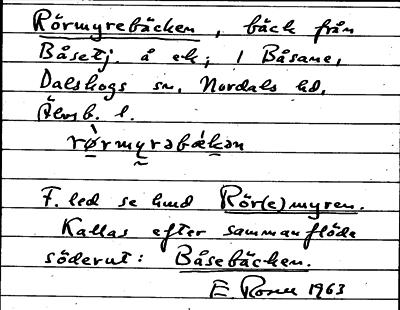 Rörmyrebäcken, bäck från
Båsetj. å ek; i Båsane,
Dalskogs sn, Nordals hd,
Älvsb. l.
rø̀rmyrəbækən
F. led se hmd Rör(e)myren.
Kallas efter sammanflöde
söderut: Båsebäcken.
E. 1963